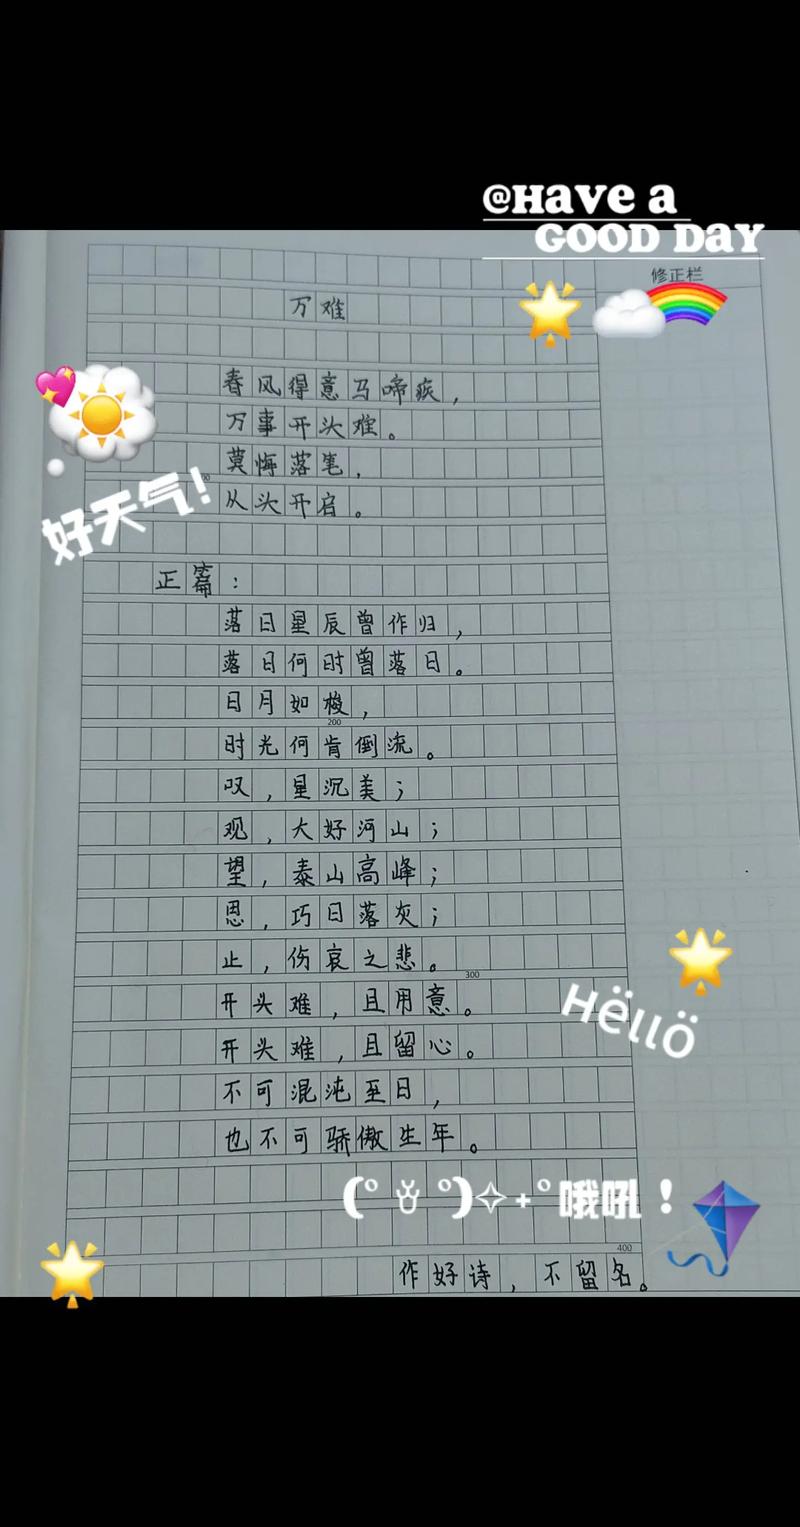 @Have a
GOOD DAY
修正栏
万难
春风得意马啼疾，
万事开头难。
莫悔落笔，
从头开启。
好天气！
正篇：
落日星辰曾作归，
落日何时曾落日。
日月如梭，
200
时光何肯倒流。
叹，星沉美；
观，大好河山；
望，泰山高峰；
思，巧日落灰；
止，伤哀之悲。
300
开头难，且用意。
Hëllö
开头难，且留心。
不可混沌至日，
也不可骄傲生年。
(º ꇴ º)✧+º哦吼！
400
作好诗，不留名。